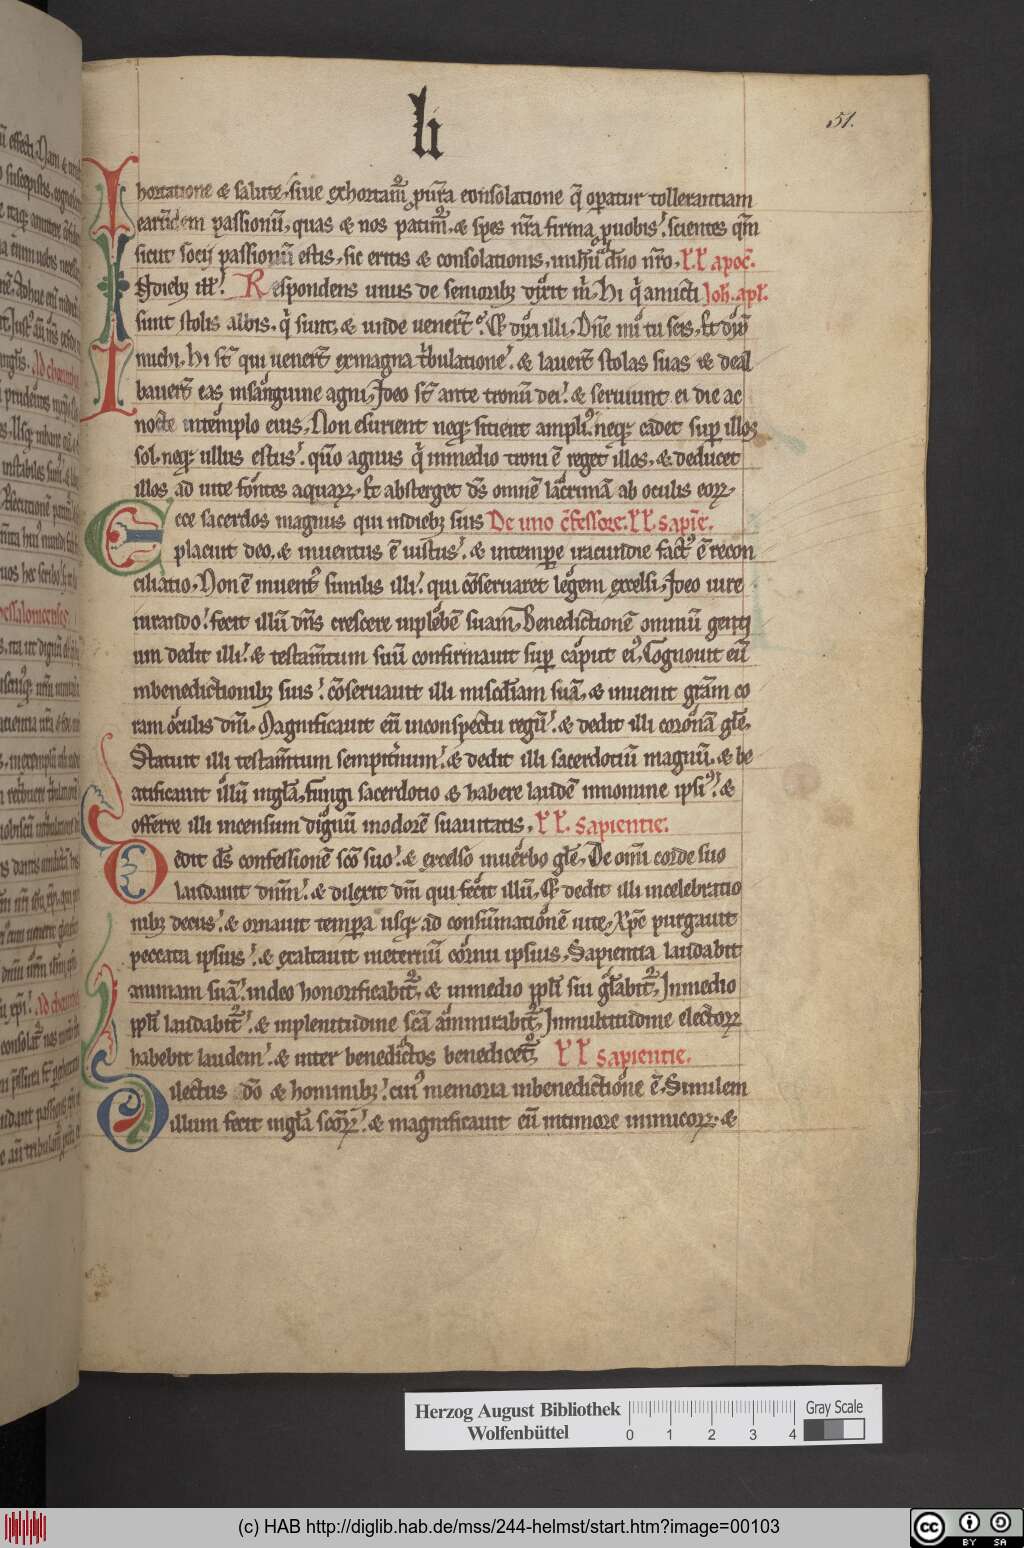 li
51.
hortatione & salute, siue exhortam᷑ p ur̅a consolatione q̇ operatur tollerantiam
earūdem passionū, quas & nos patim᷑, & spes nr̅a firma p uobis, scientes qm̅
sicut socij passionū estis, sic eritis & consolationis, in xp̅o ih̅u dn̅o nr̅o. LL apoc̅.
In diebꝫ ill̅. Respondens unus de seniorībꝫ dixit m̄, Hi q̇ amicti Joh. apl̅.
sunt stolis albis, q̇ sunt, & unde uener̅t. Et dixi illi, Dn̅e mi tu scis, Et dix̄
michi, Hi st̅ qui uener̅t ex magna tͥbulatione. & lauer̅t stolas suas & deal
bauer̅t eas in sanguine agni, Ideo st̅ ante tronū dei. & seruiunt ei die ac
nocte in templo eius, Non esurient neqꝫ sitient ampliꝰ neqꝫ cadet sup̱ illos
sol, neqꝫ ullus estus. qm̅o agnus q̇ in medio troni ē reget illos, & deducet
illos ad uite fontes aquaꝝ, Et absterget ds̅ omnē lacrimā ab oculis eoꝝ,
Ecce sacerdos magnus qui in diebꝫ suis De uno cōfessore. LL sapīe.
placuit deo, & inuentus ē iustus. & in tempe̱ iracundie factꝰ ē recon
ciliatio, Non ē inuentꝰ similis illi. qui cōseruaret legem excelsi, Ideo iure
iurando. fecit illū dn̅s crescere in plebē suam, Benedictionē omniū genti
um dedit illi. & testam̅tum suū confirmauit sup̱ caput eiꝰ, Cognouit eū
in benedictionibꝫ suis. cōseruauit illi misc̅diam suā, & inuenit gr̅am co
ram oculis dn̅i, Magnificauit eū in conspectu regū. & dedit illi coronā gl̅e,
Statuit illi testam̅tum sempitͥnum. & dedit illi sacerdotiū magnū, & be
atificauit illū in gl̅a, fungi sacerdotio & habere laudē in nomine ipsiꝰ. &
offerre illi incensum dignū in odorē suauitatis, LL. Sapientie.
Dedit ds̅ confessionē sc̅o suo. & excelso in uerbo gl̅e, De om̅i corde suo
laudauit dn̅m. & dilexit dm̅ qui fecit illū, Et dedit illi in celebratio
nibꝫ decus. & ornauit tempora usqꝫ ad consūmationē uite, Xp̅c purgauit
peccata ipsius. & exaltauit in eternū cornu ipsius, Sapientia laudabit
animam suā. in deo honorificabit᷑, & in medio pp̅li sui gl̅abit᷑, In medio
pp̅li laudabit᷑. & in plenitudine sc̅a ammirabit᷑, In multitudine electoꝝ
habebit laudem. & inter benedictos benedicet᷑, LL Sapientie.
Dilectus dō & hominibꝫ. cuiꝰ memoria in benedictione ē, Similem
illum fecit in gl̅a sc̅oꝝ. & magnificauit eū in timore inimicoꝝ. &
Herzog August Bibliothek
Wolfenbüttel
0 1 2 3 4
Gray Scale
(c) HAB http://diglib.hab.de/mss/244-helmst/start.htm?image=00103
cc BY SA